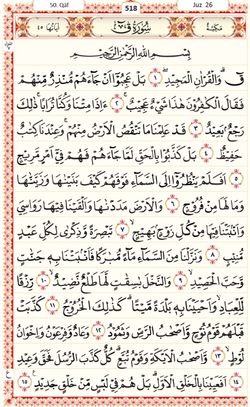 so. qaf
518
Juz 26
مَكِّيَّة
سُورَةُ قٓ
اٰيَاتُهَا ٤٥
بِسْمِ اللّٰهِ الرَّحْمٰنِ الرَّحِيْمِ
قٓ ۚ وَالْقُرْاٰنِ الْمَجِيْدِ ۝١ بَلْ عَجِبُوْٓا اَنْ جَآءَهُمْ مُنْذِرٌ مِنْهُمْ
فَقَالَ الْكٰفِرُوْنَ هٰذَا شَيْءٌ عَجِيْبٌ ۝٢ ءَاِذَا مِتْنَا وَكُنَّا تُرَابًا ذٰلِكَ
رَجْعٌ بَعِيْدٌ ۝٣ قَدْ عَلِمْنَا مَا تَنْقُصُ الْاَرْضُ مِنْهُمْ وَعِنْدَنَا كِتَابٌ
حَفِيْظٌ ۝٤ بَلْ كَذَّبُوْا بِالْحَقِّ لَمَّا جَآءَهُمْ فَهُمْ فِيْٓ اَمْرٍ مَرِيْجٍ
۝٥ اَفَلَمْ يَنْظُرُوْٓا اِلَى السَّمَآءِ فَوْقَهُمْ كَيْفَ بَنَيْنٰهَا وَزَيَّنّٰهَا
وَمَا لَهَا مِنْ فُرُوْجٍ ۝٦ وَالْاَرْضَ مَدَدْنٰهَا وَاَلْقَيْنَا فِيْهَا رَوَاسِيَ
وَاَنْبَتْنَا فِيْهَا مِنْ كُلِّ زَوْجٍ بَهِيْجٍ ۝٧ تَبْصِرَةً وَذِكْرٰى لِكُلِّ عَبْدٍ
مُنِيْبٍ ۝٨ وَنَزَّلْنَا مِنَ السَّمَآءِ مَآءً مُبٰرَكًا فَاَنْبَتْنَا بِهٖ جَنّٰتٍ
وَحَبَّ الْحَصِيْدِ ۝٩ وَالنَّخْلَ بٰسِقٰتٍ لَهَا طَلْعٌ نَضِيْدٌ ۝١٠ رِزْقًا
لِلْعِبَادِ وَاَحْيَيْنَا بِهٖ بَلْدَةً مَيْتًا كَذٰلِكَ الْخُرُوْجُ ۝١١ كَذَّبَتْ
قَبْلَهُمْ قَوْمُ نُوْحٍ وَاَصْحٰبُ الرَّسِّ وَثَمُوْدُ ۝١٢ وَعَادٌ وَفِرْعَوْنُ وَاِخْوَانُ
لُوْطٍ ۝١٣ وَاَصْحٰبُ الْاَيْكَةِ وَقَوْمُ تُبَّعٍ كُلٌّ كَذَّبَ الرُّسُلَ فَحَقَّ وَعِيْدِ
۝١٤ اَفَعَيِيْنَا بِالْخَلْقِ الْاَوَّلِ بَلْ هُمْ فِيْ لَبْسٍ مِنْ خَلْقٍ جَدِيْدٍ ۝١٥